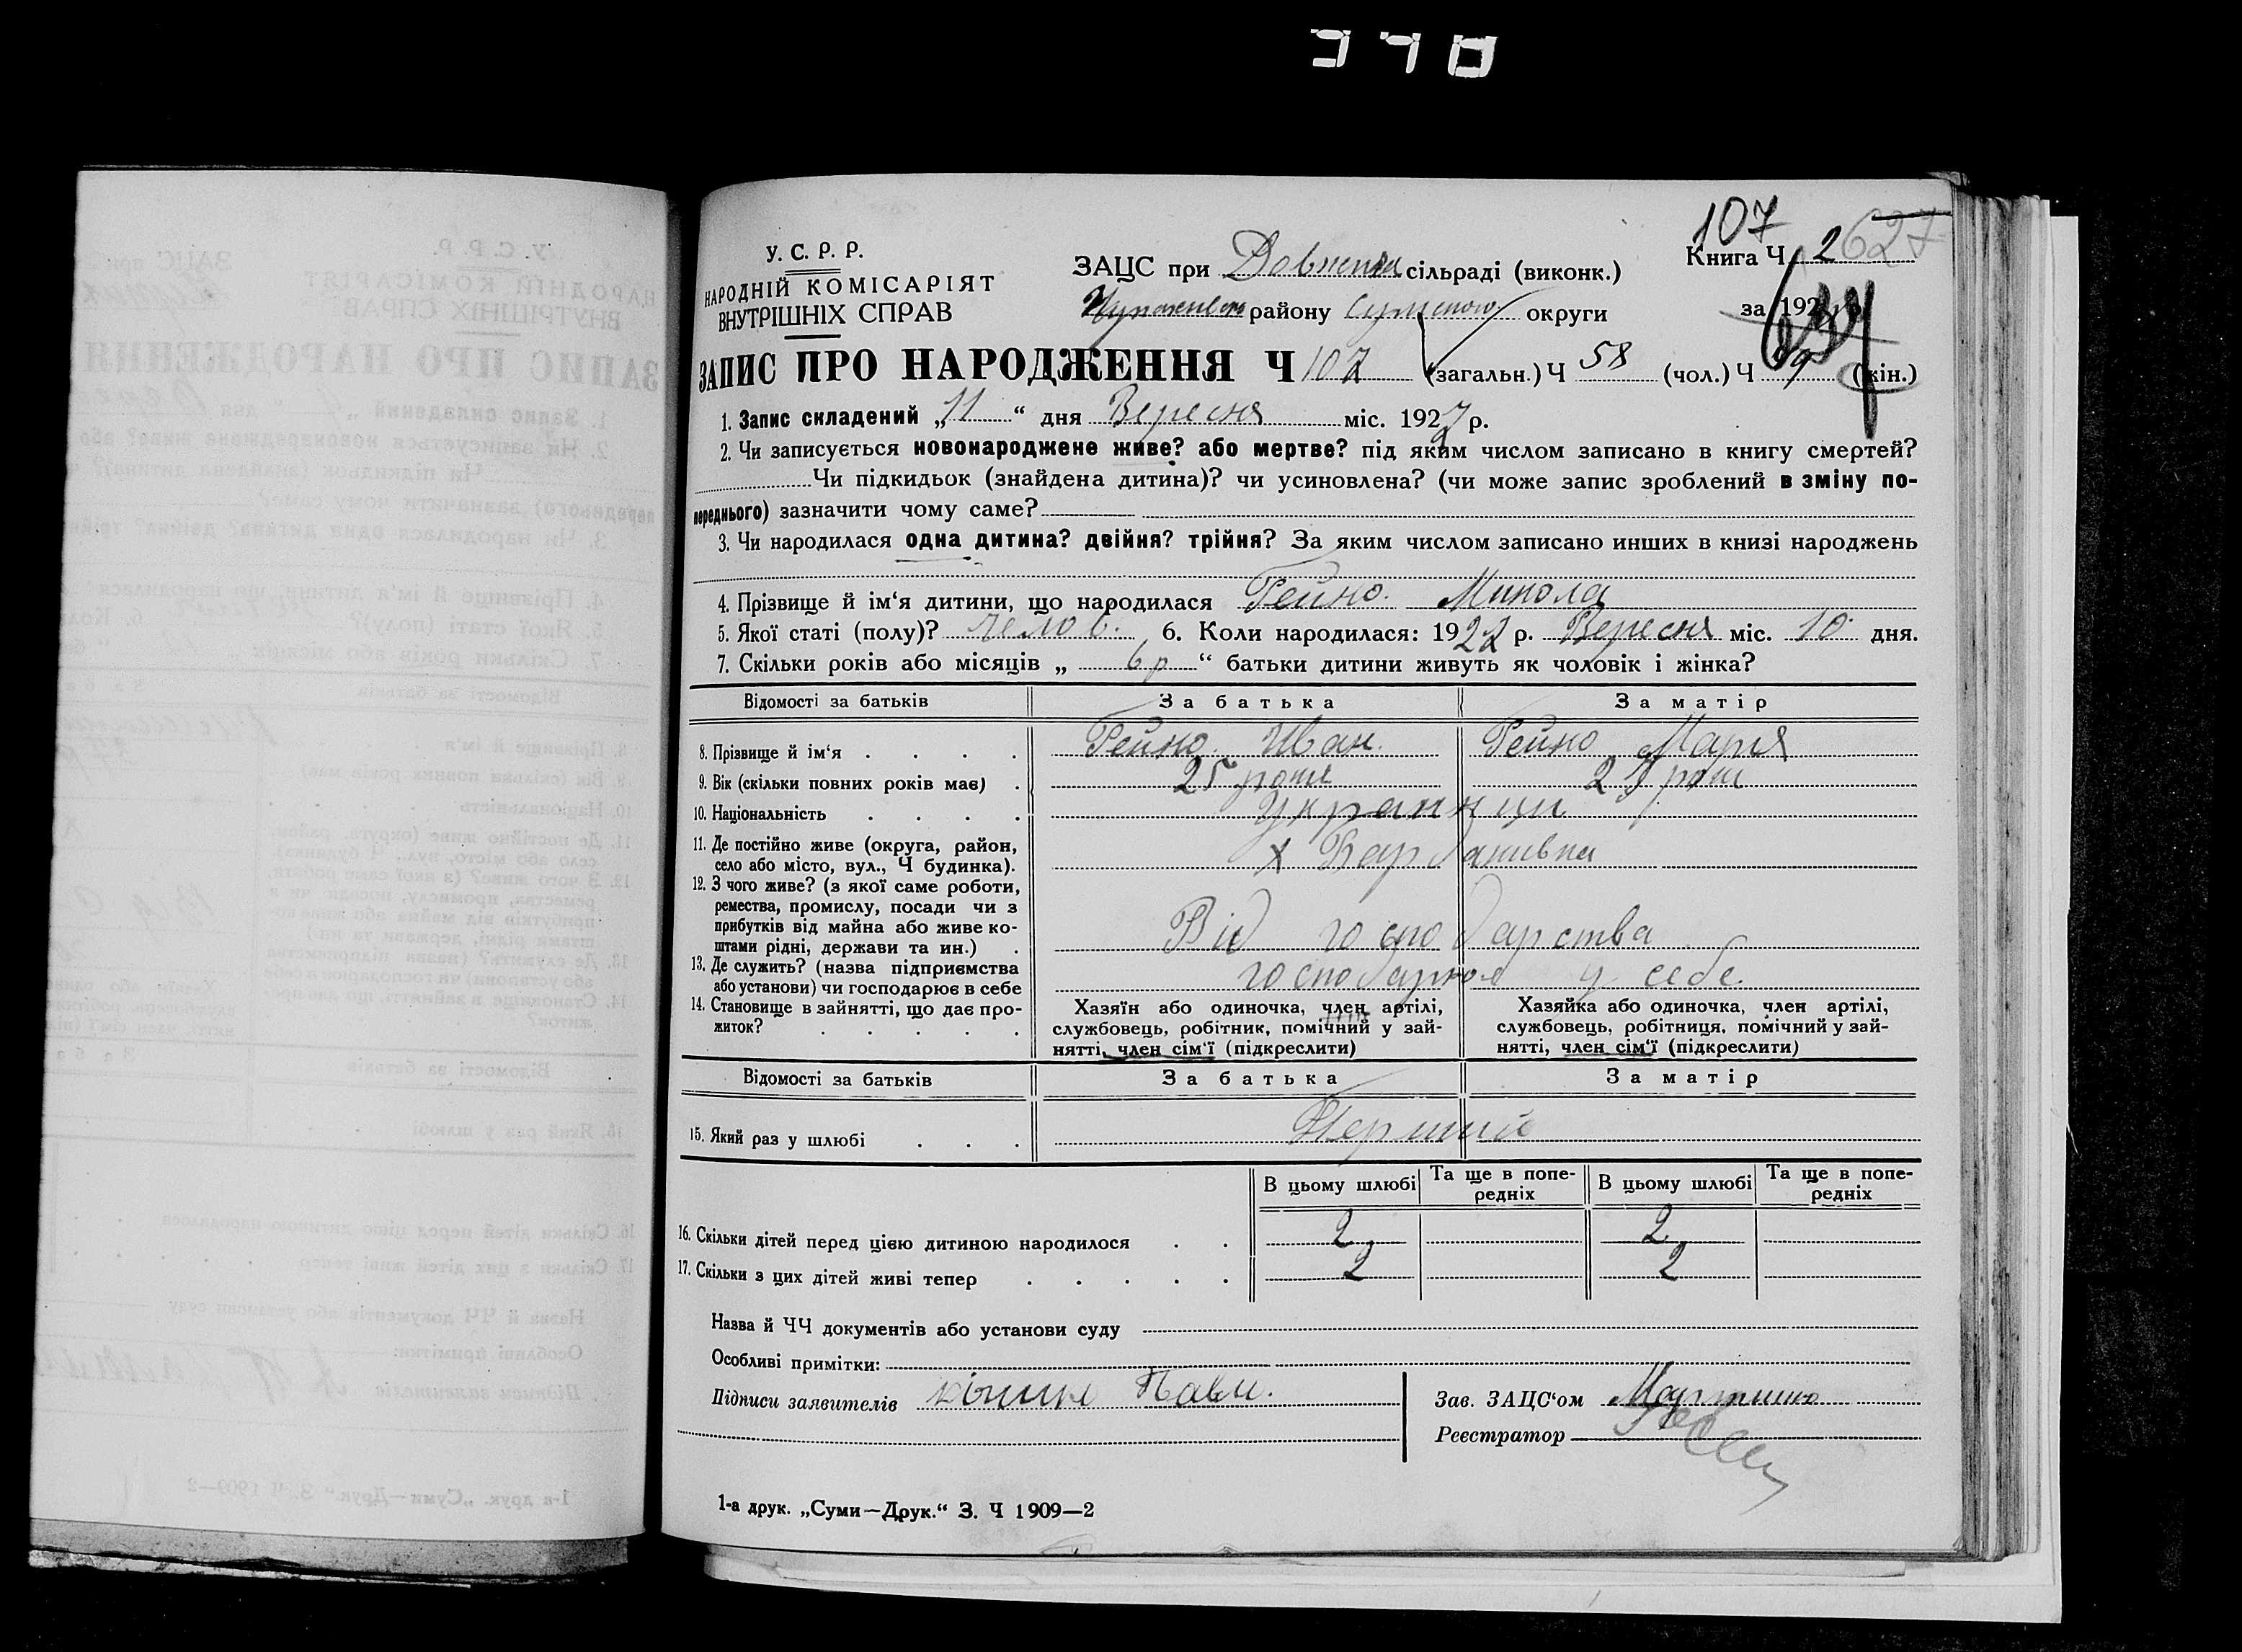 107
У. С. Р. Р.
НАРОДНІЙ КОМІСАРІЯТ
ВНУТРІШНІХ СПРАВ
ЗАЦС при сільраді (виконк.)
району округи
Книга Ч 2 627
за 192
ЗАПИС ПРО НАРОДЖЕННЯ Ч 107 (загальн.) Ч 58 (чол.) Ч 49 (жін.)
1. Запис складений „11“ дня Вересня міс. 1927 р.
2. Чи записується новонароджене живе? або мертве? під яким числом записано в книгу смертей?
Чи підкидьок (знайдена дитина)? чи усиновлена? (чи може запис зроблений в зміну по-
переднього) зазначити чому саме?
3. Чи народилася одна дитина? двійня? трійня? За яким числом записано инших в книзі народжень
4. Прізвище й ім‘я дитини, що народилася Рейно Микола
5. Якої статі (полу)? челов. 6. Коли народилася: 1927 р. Вересня міс. 10 дня.
7. Скільки років або місяців „ 6 р “ батьки дитини живуть як чоловік і жінка?
Відомості за батьків За батька За матір
8. Прізвище й ім‘я Рейно Иван. Рейно Мария
9. Вік (скільки повних років має) 25 25
10. Національність Украинци
11. Де постійно живе (округа, район,
село або місто, вул., Ч будинка). х
12. З чого живе? (з якої саме роботи,
ремества, промислу, посади чи з
прибутків від майна або живе ко-
штами рідні, держави та ин.) Від господарства
13. Де служить? (назва підприємства
або установи) чи господарює в себе у себе.
14. Становище в зайнятті, що дає про-
житок?
Хазяїн або одиночка, член артілі,
службовець, робітник, помічний у зай-
нятті, член сім‘ї (підкреслити)
Хазяйка або одиночка, член артілі,
службовець, робітниця, помічний у зай-
нятті, член сім‘ї (підкреслити)
Відомості за батьків За батька За матір
15. Який раз у шлюбі Перший
В цьому шлюбі Та ще в попе-
редніх В цьому шлюбі Та ще в попе-
редніх
16. Скільки дітей перед цією дитиною народилося 2 2
17. Скільки з цих дітей живі тепер 2 2
Назва й ЧЧ документів або установи суду
Особливі примітки:
Підписи заявителів
Зав. ЗАЦС‘ом
Реєстратор
1-а друк. „Суми—Друк.“ З. Ч 1909—2